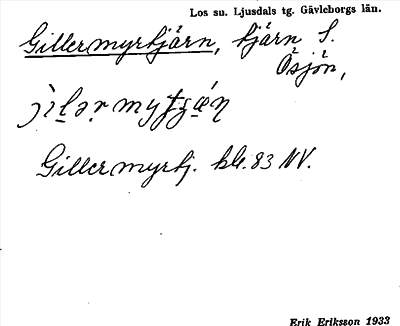 Los su. Ljusdals tg. Gävleborgs län.
Gillermyrtjärn, tjärn S.
Ösjön,
Gillermyrtj. kbl. 83 NV.
Erik Eriksson 1933